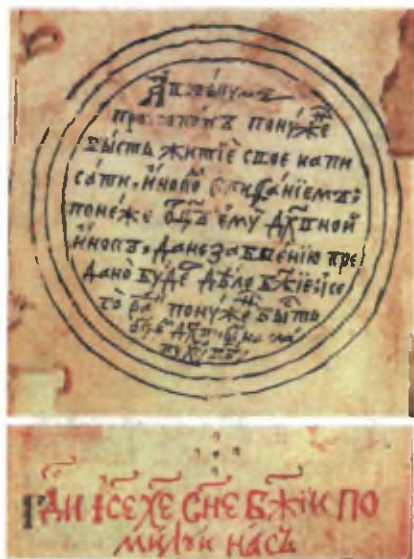 Аввакумъ
протопопъ понуже́ⷩ
бысть житїѐ свое напи
сати, и҆нокоⷨ епифаниемъ,
поне́же ѻц҃ъ ему̀ дх҃овной
и҆нокъ, да незабвению пре
дано̀ бꙋдеⷮ дѣло бж҃ие, и се
го̀ раⷣ понуже́ⷩ бы́сть
на сла
Гд҃и І҆с҃е Хе҃ Сн҃е Бж҃їи по
милꙋи насъ